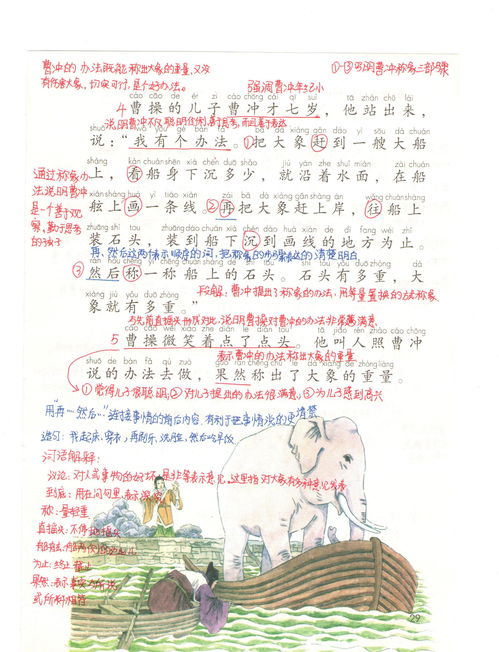 曹冲的办法既能称出大象的重量,又没
有伤害大象,切实可行,是个好办法。
①-③写明曹冲称象三部曲
强调曹冲年纪小
4 曹操的儿子曹冲才七岁,他站出来,
说明曹冲不仅聪明伶俐,善于思考,而且善于表达
说:“我有个办法。①把大象赶到一艘大船
上,看船身下沉多少,就沿着水面,在船
舷上画一条线。②再把大象赶上岸,往船上
装石头,装到船下沉到画线的地方为止。
通过称象办
法说明曹冲
是一个善于观
察,勤于思考
的孩子
再、然后这两个表示顺序的词,把称象的步骤表达的清楚明白
③然后称一称船上的石头。石头有多重,大
段解:曹冲提出了称象的办法,用等量置换的方法称象
象就有多重。”
与先前直摇头形成对比,说明曹操对曹冲的办法非常满意
5 曹操微笑着点了点头。他叫人照曹冲
表示曹冲的办法称出大象的重量
说的办法去做,果然称出了大象的重量。
①觉得儿子很聪明,②对儿子提出的办法很满意,③为儿子感到高兴
用“再…然后…”连接事情的前后内容,有利于把事情说的更清楚
造句:我起床,穿衣,再刷牙、洗脸,然后吃早饭
词语解释:
议论:对人或事物的好坏、是非等表示意见。这里指对大象有多种意见
到底:用在问句里,表示深究
称:量轻重
直摇头:不停地摇头
船舷:船两侧的边儿
为止:终止,截止
果然:表示事实与所说
或所料相符
29